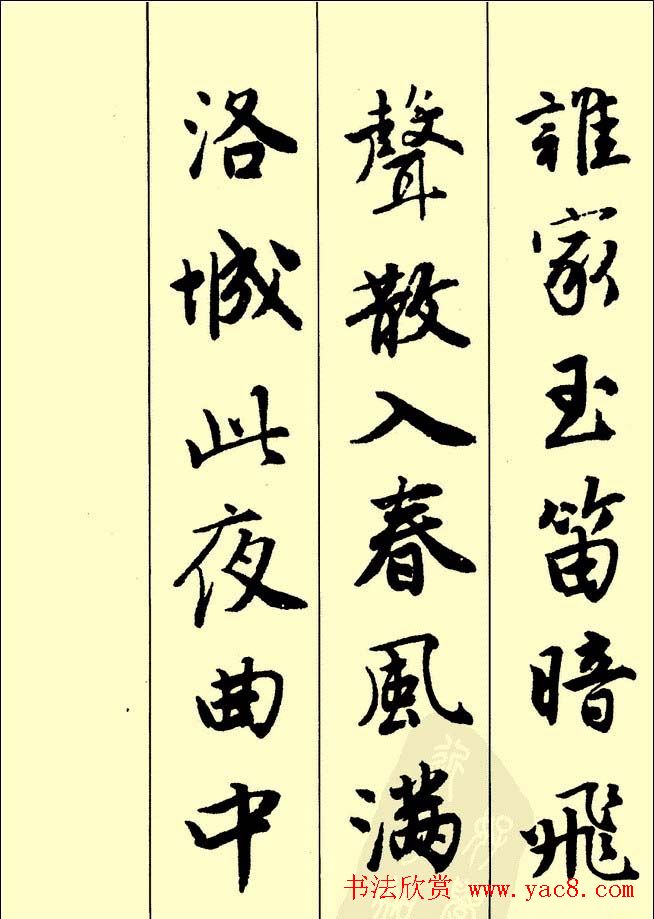 誰家玉笛暗飛
聲散入春風滿
洛城此夜曲中
书法欣赏 www.yac8.com